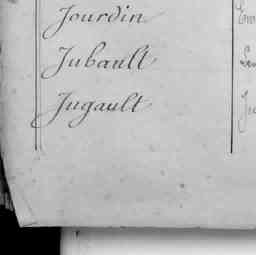 Jourdin
Jubault
Jugault